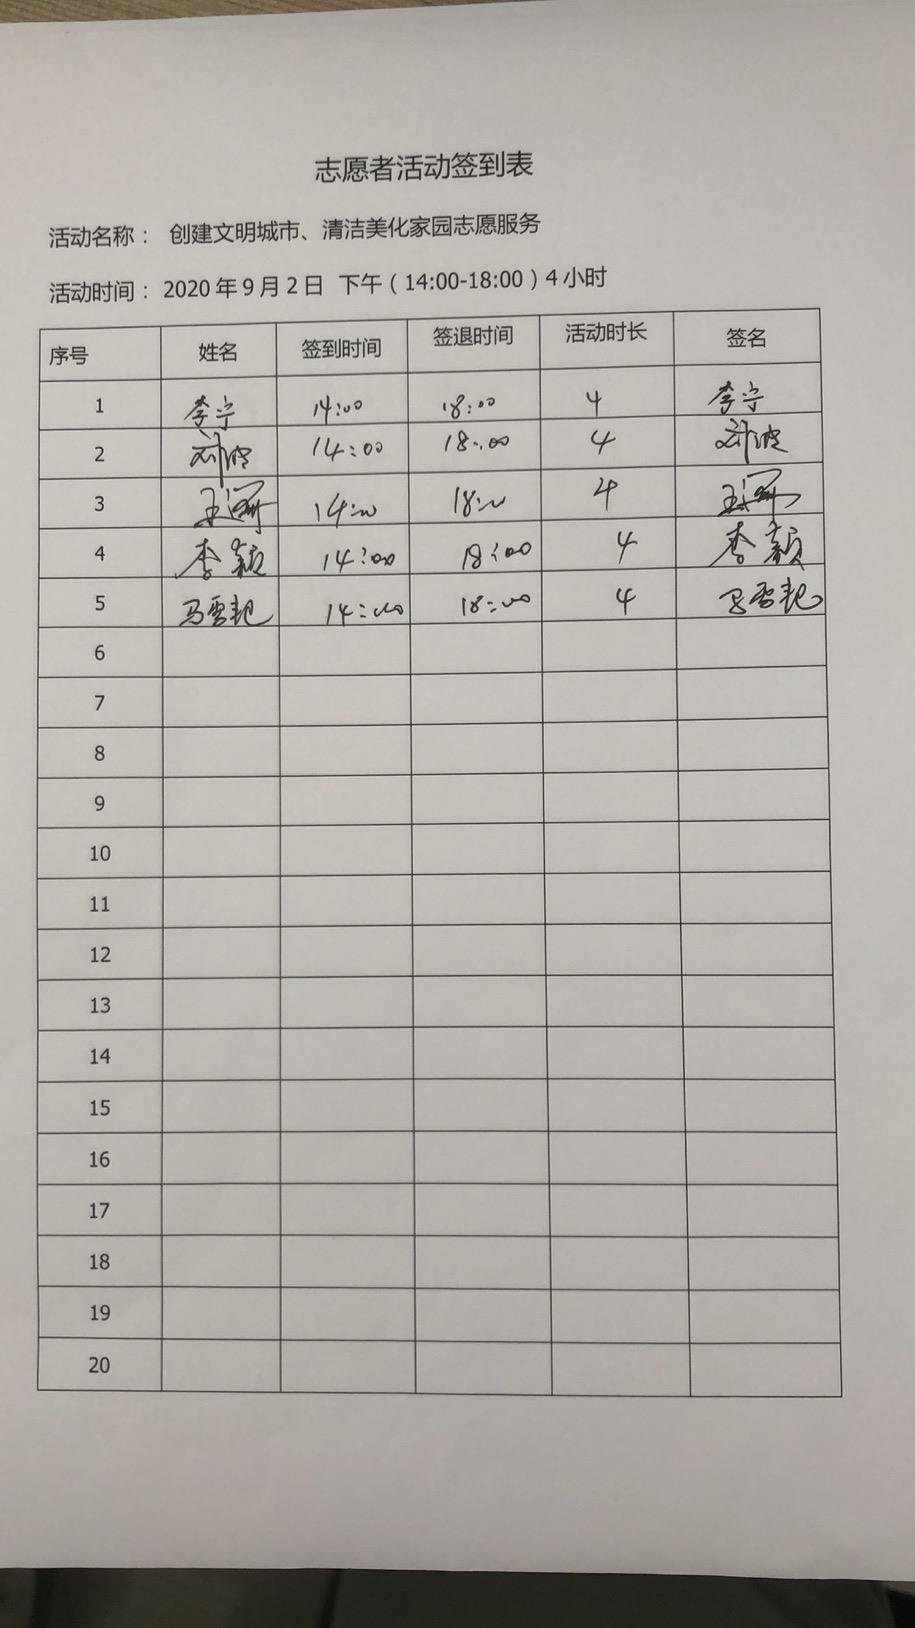 志愿者活动签到表
活动名称： 创建文明城市、清洁美化家园志愿服务
活动时间：2020年9月2日 下午（14:00-18:00）4小时
序号 姓名 签到时间 签退时间 活动时长 签名
1 李宁 14:00 18:00 4 李宁
2 刘波 14:00 18:00 4 刘波
3 14:00 18:00 4
4 李颖 14:00 18:00 4 李颖
5 马雪艳 14:00 18:00 4 马雪艳
6
7
8
9
10
11
12
13
14
15
16
17
18
19
20